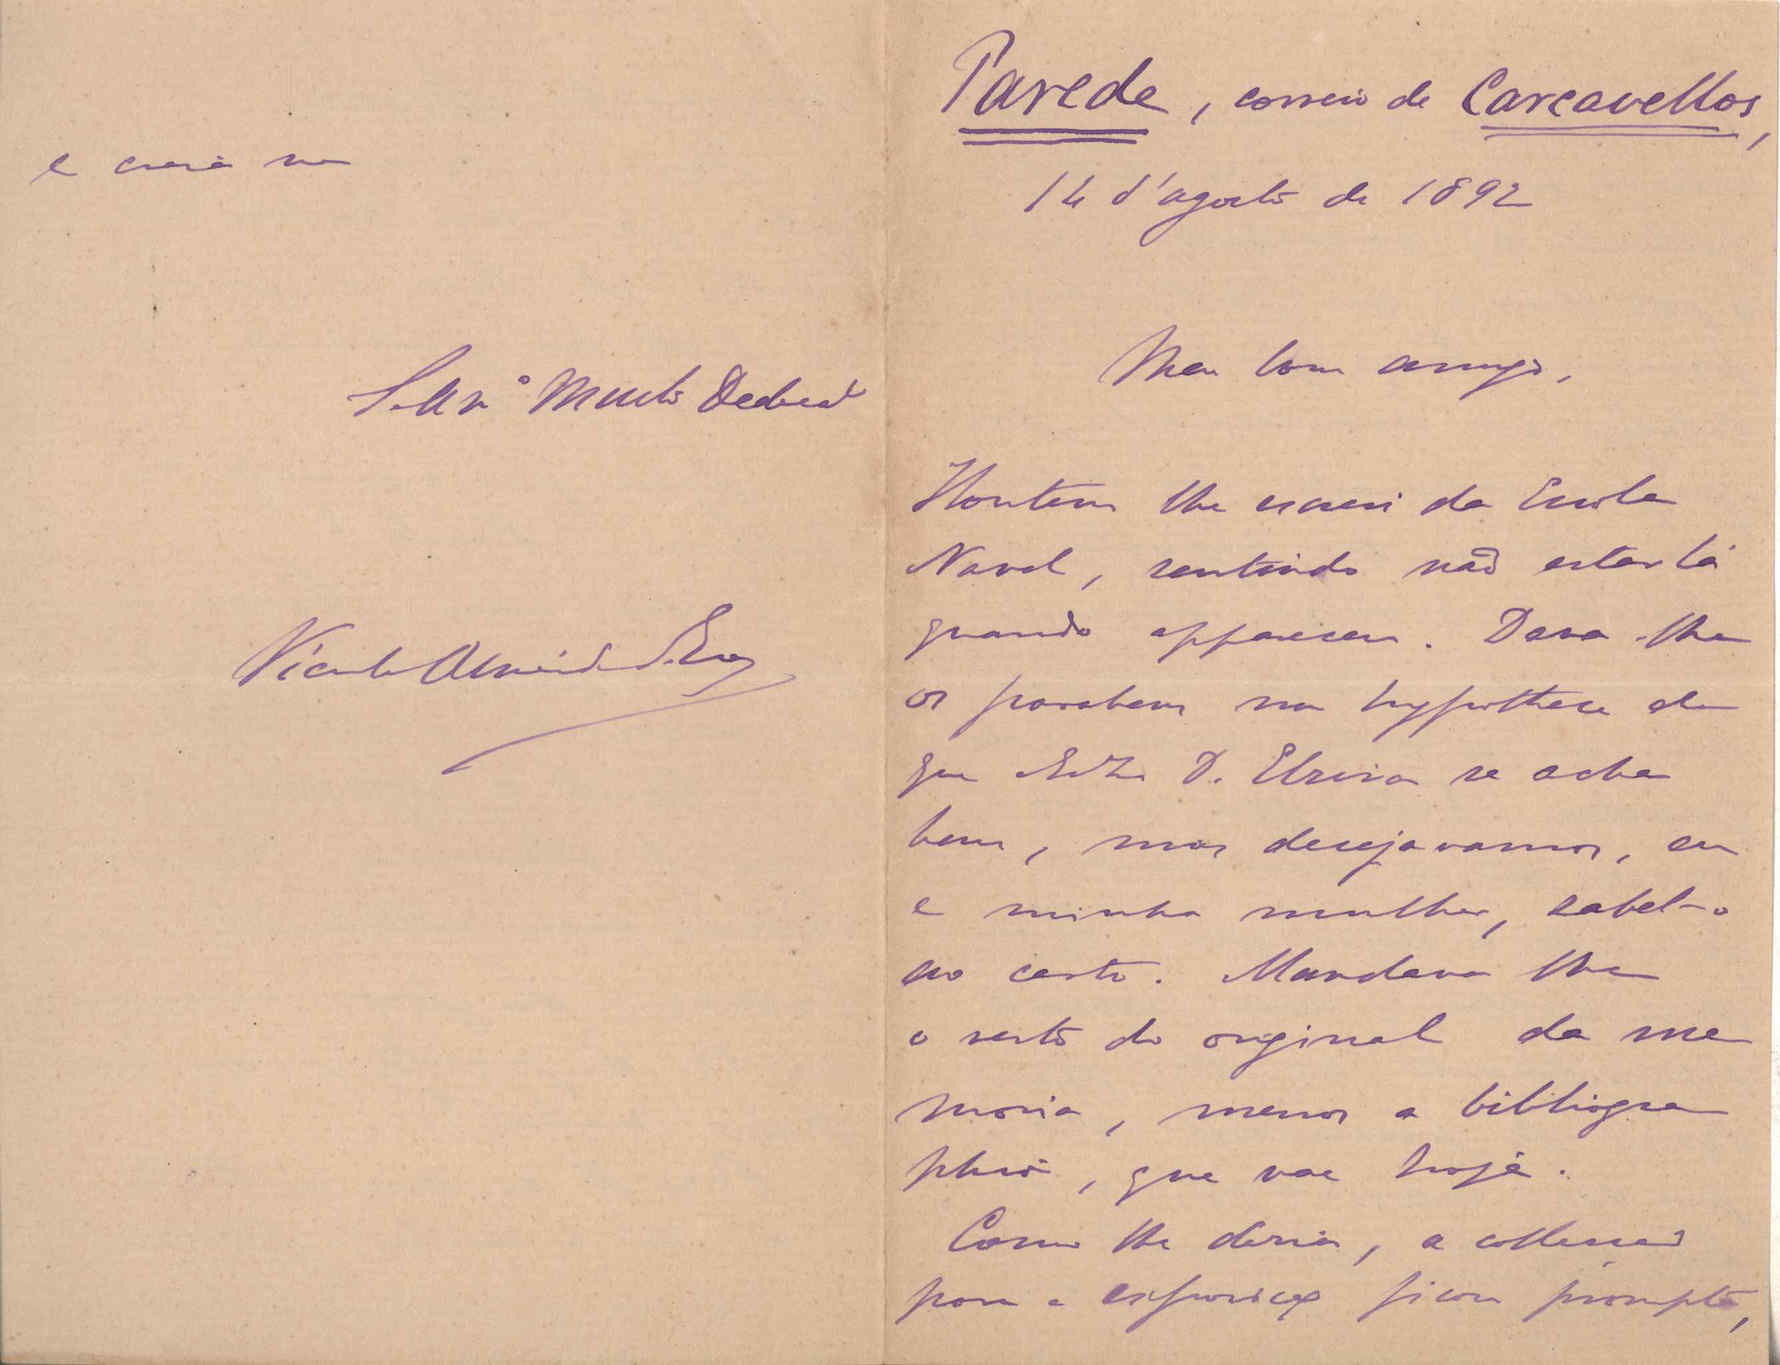 Parede, correio de Carcavellos,
14 d'agosto de 1892
Meu bom amigo,
Hontem lhe escrevi da Escola
Naval, sentindo não estar lá
quando appareceu. Dava-lhe
os parabens na hypothese de
que D. Elvira se acha
bem, mas desejavamos, eu
e minha mulher, sabel-o
ao certo. Mandava lhe
o resto do original da me
moria, menos a bibliogra
phia, que vae hoje.
Como lhe dizia, a collecção
para a exposição ficou prompta,
e creia no
Seu Am.º Muito Dedicado
Vicente Almeida d'Eça